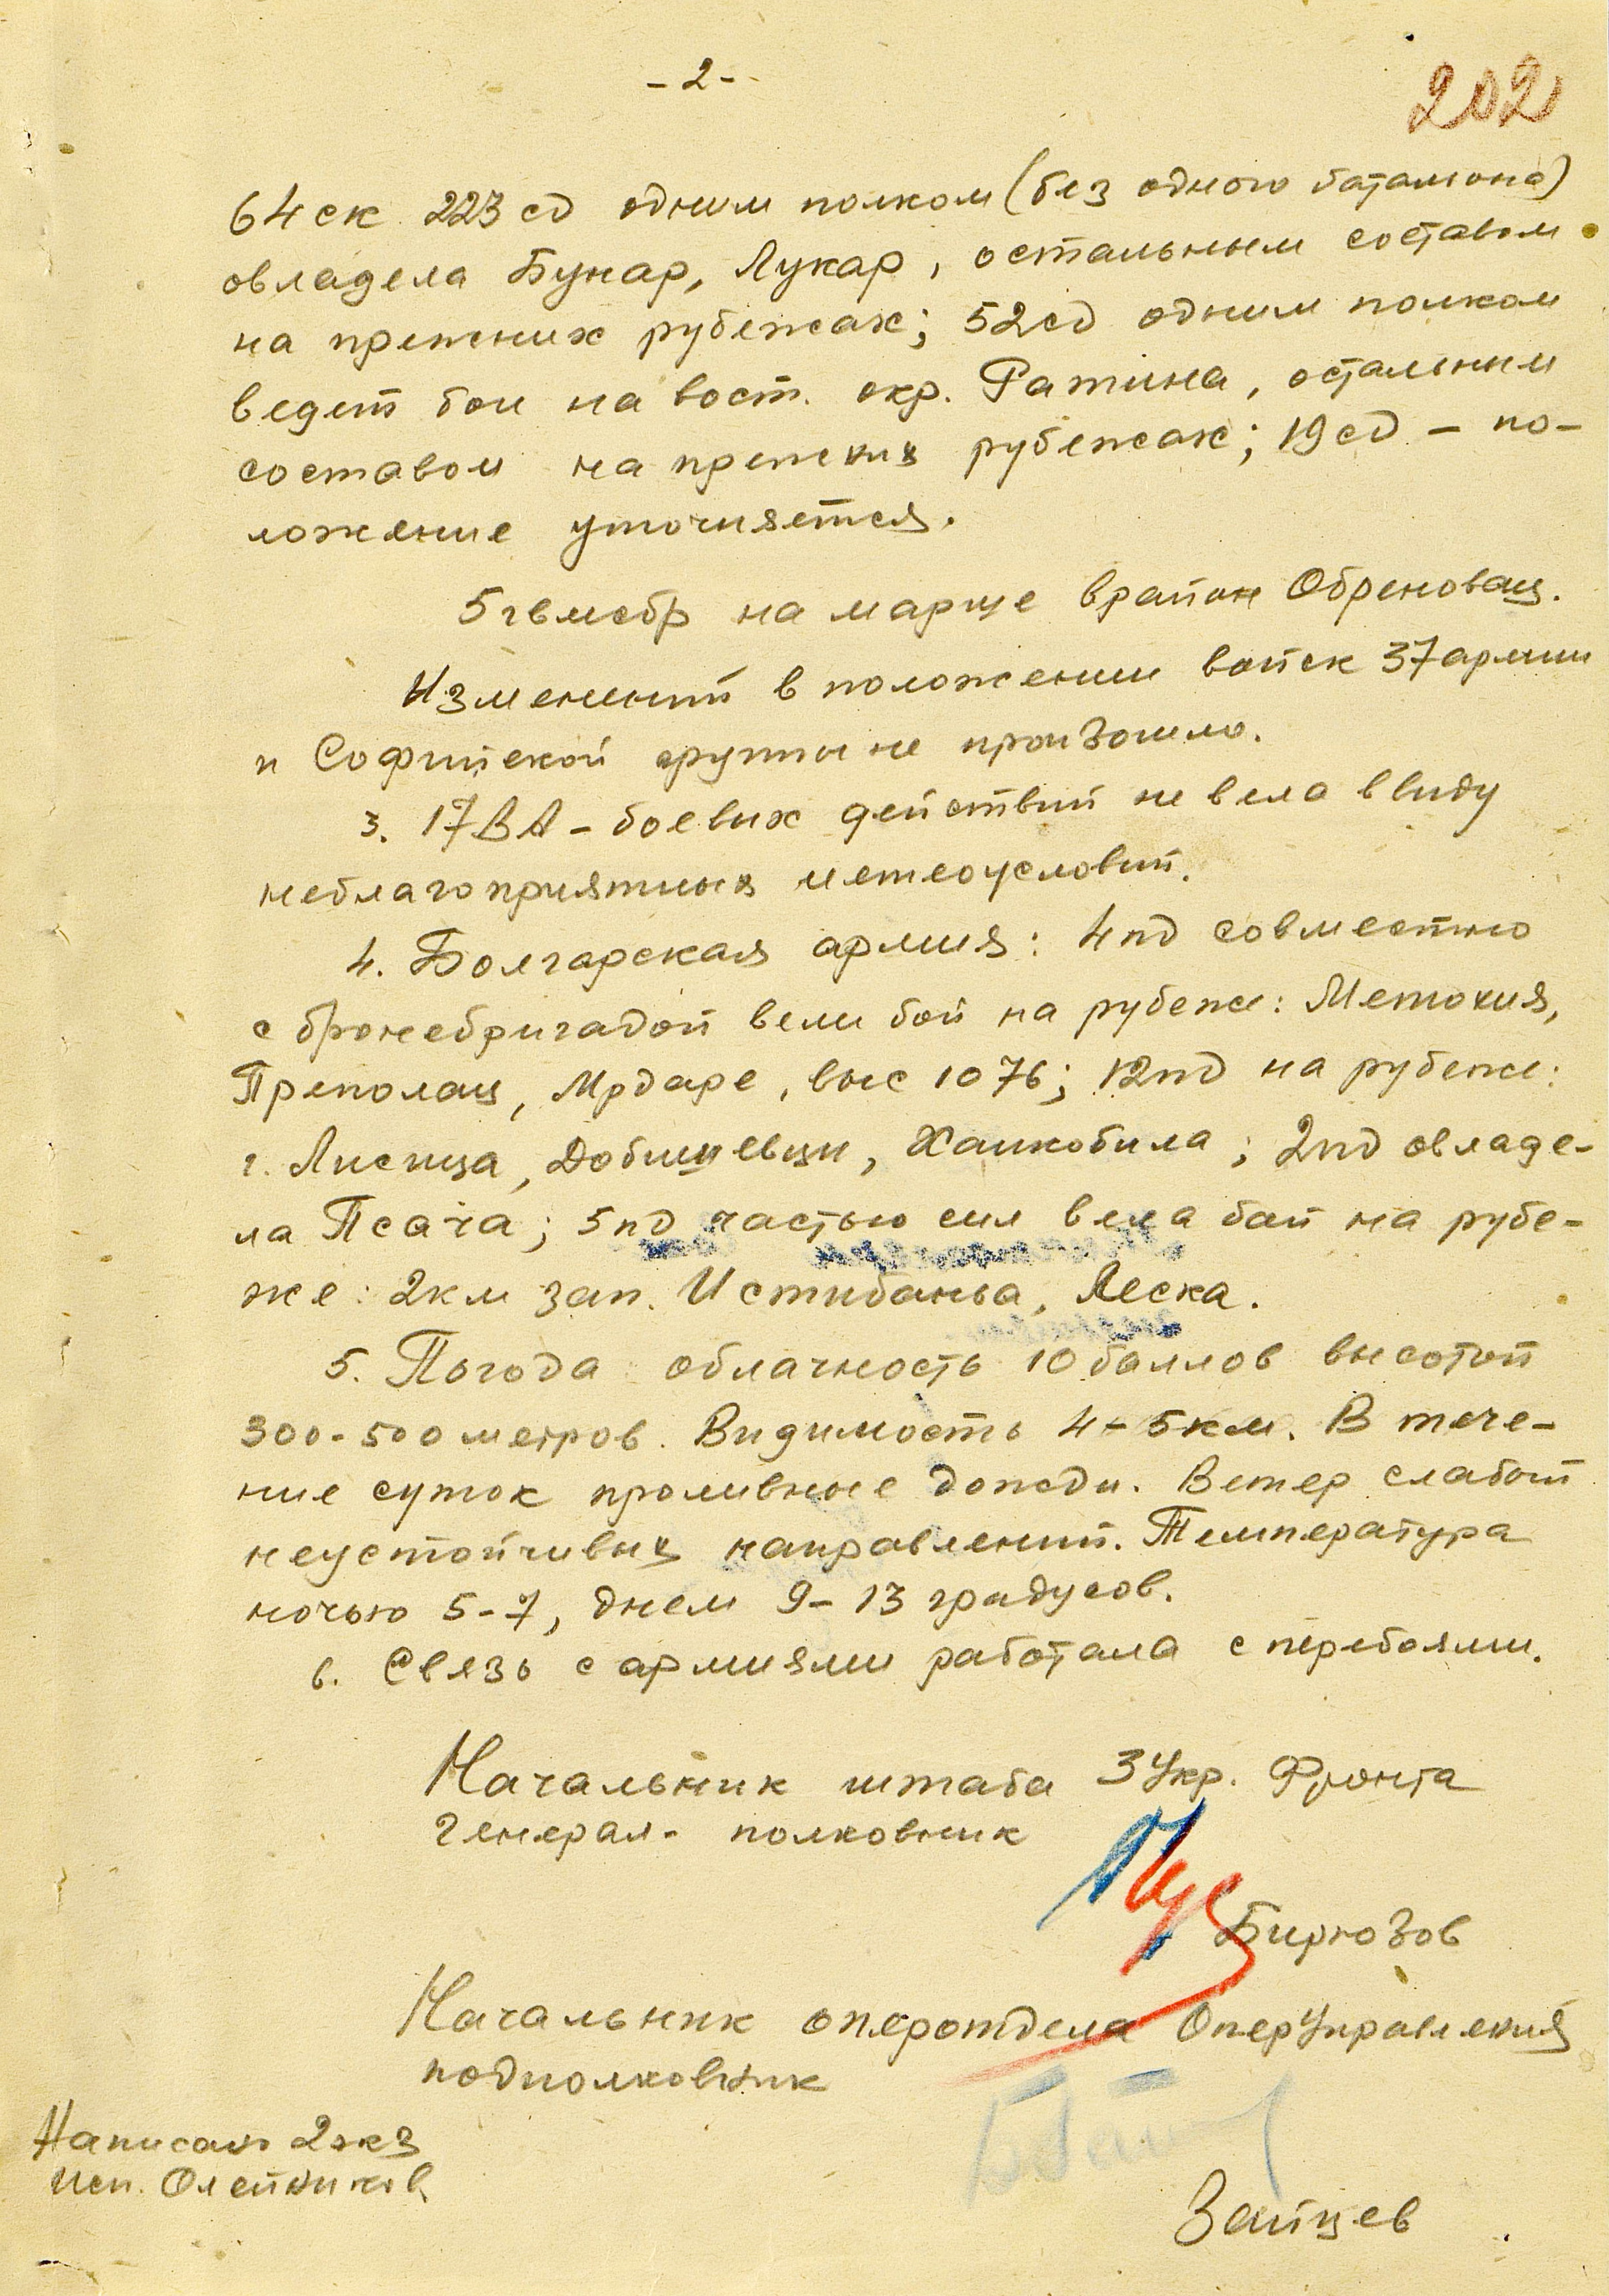 - 2 -
202
64 ск 223 сд одним полком (без одного батальона)
овладела Бунар, Лукар, остальным составом
на прежних рубежах; 52 сд одним полком
ведет бои на вост. окр. Ратина, остальным
составом на прежних рубежах; 19 сд – по-
ложение уточняется.
5 гв мсбр на марше в район Обреновац.
Изменений в положении войск 37 армии
и Софийской группы не произошло.
3. 17 ВА – боевых действий не вела ввиду
неблагоприятных метеоусловий.
4. Болгарская армия: 4 пд совместно
с бронебригадой вели бой на рубеже: Метохия,
Преполац, Мрдаре, выс 1076; 12 пд на рубеже:
г. Лисица, Добишевци, Ханкобила; 2 пд овладе-
ла Псача; 5 пд частью сил вела бой на рубе-
же: 2 км зап. Истибанья, Леска.
5. Погода: облачность 10 баллов высотой
300-500 метров. Видимость 4-5 км. В тече-
ние суток проливные дожди. Ветер слабый
неустойчивых направлений. Температура
ночью 5-7, днем 9-13 градусов.
6. Связь с армиями работала с перебоями.
Начальник штаба 3 Укр. Фронта
генерал-полковник
Бирюзов
Начальник оперотдела Оперуправления
подполковник
Написано 2 экз
исп. Олейников
Зайцев